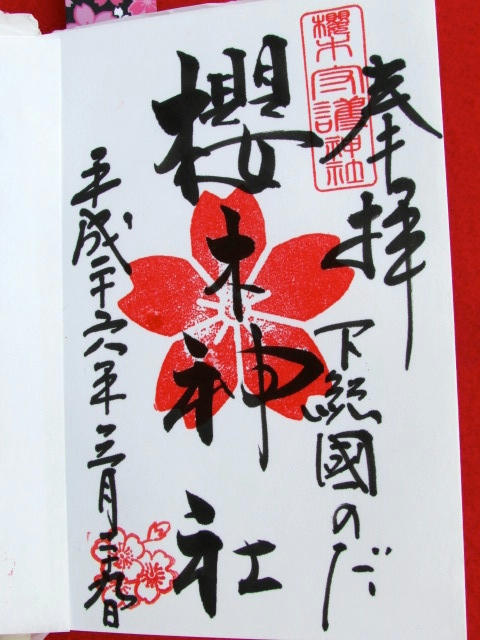 奉拝
下総國のだ
櫻木神社
平成二十六年三月二十九日
櫻木守護神社